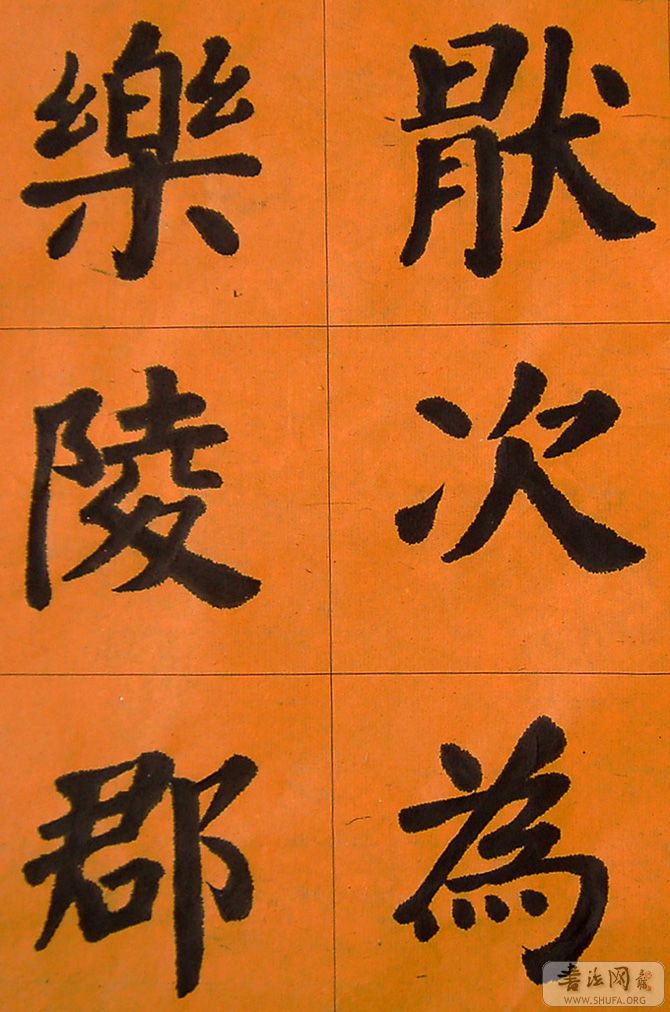 猒次為
樂陵郡
書法网
WWW.SHUFA.ORG